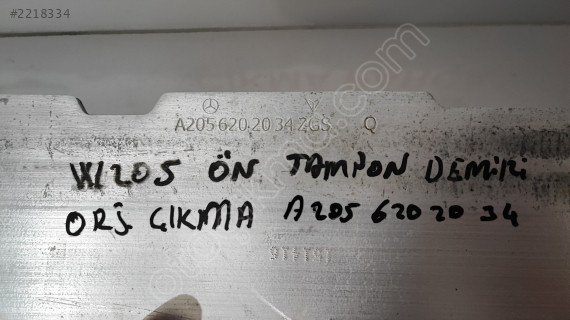 #2218334
A205 620 20 34 ZGS Q
W205 ÖN TAMPON DEMİRİ
ORJ. ÇIKMA A205 620 20 34